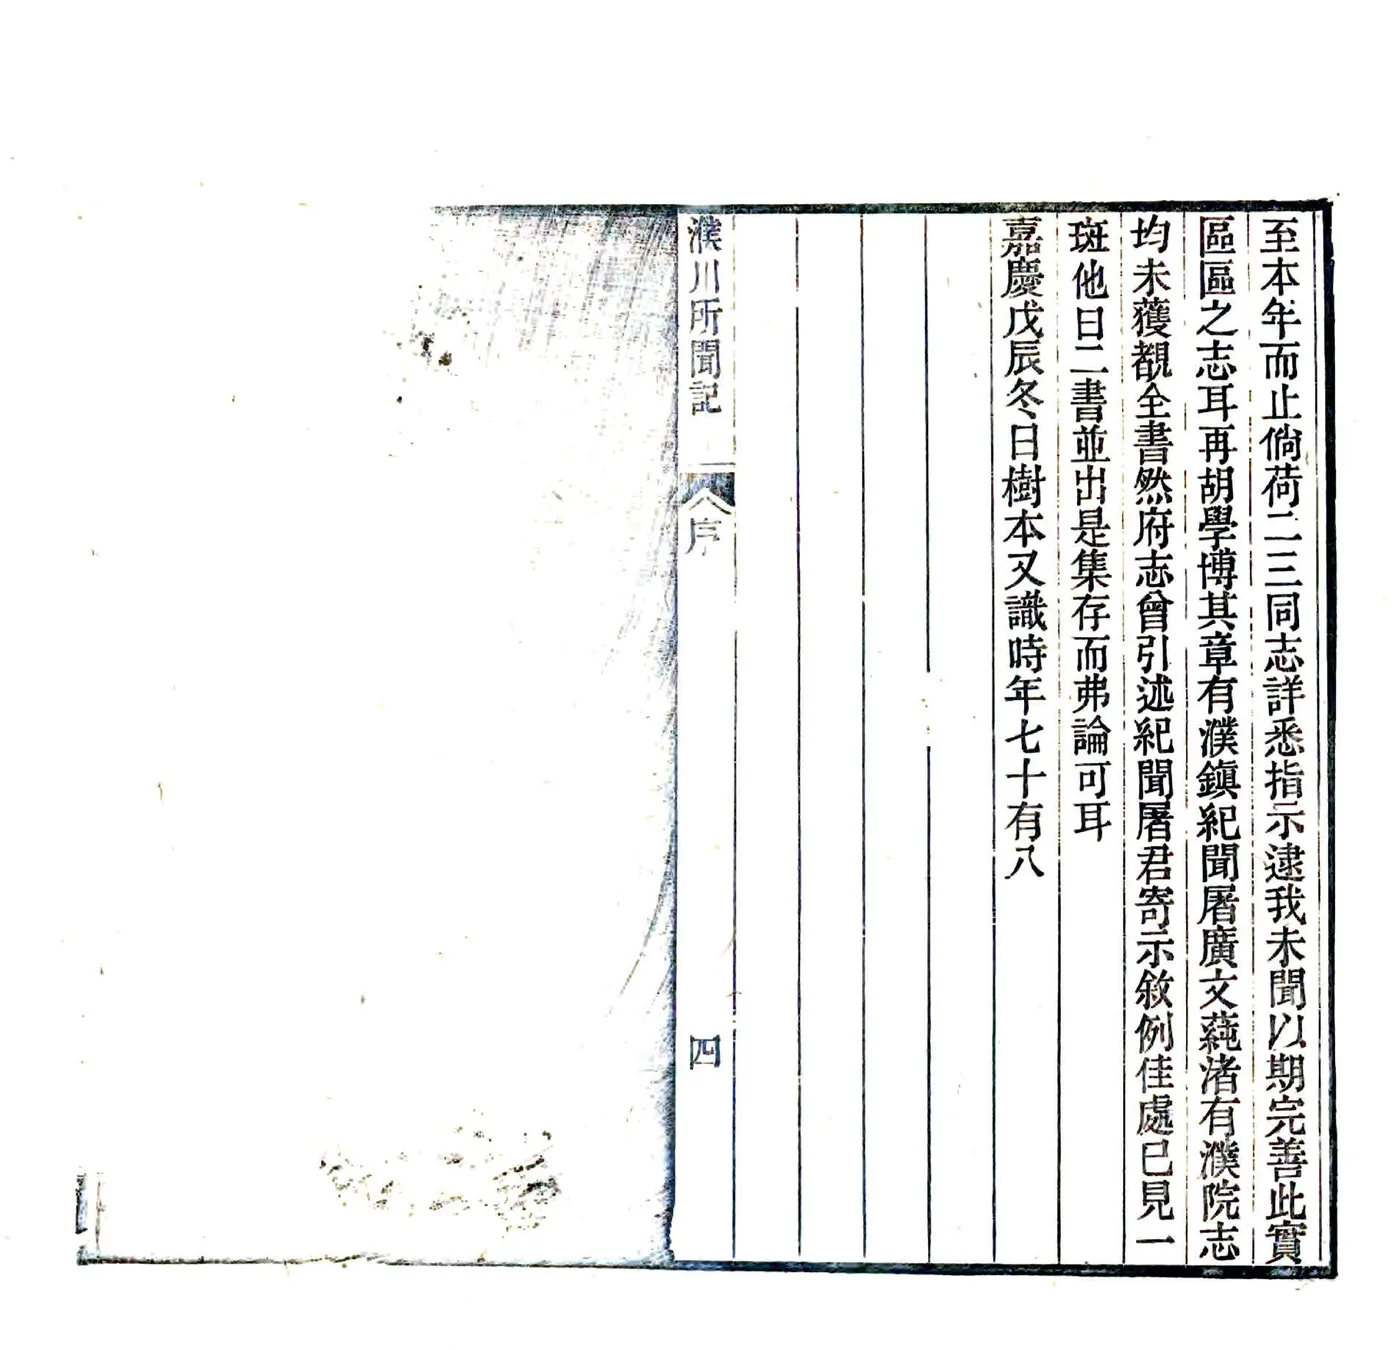 至本年而止倘荷二三同志詳悉指示逮我未聞以期完善此實
區區之志耳再胡學博其章有濮鎮紀聞屠廣文蒓渚有濮院志
均未獲覩全書然府志曾引述紀聞屠君寄示敘例佳處已見一
斑他日二書並出是集存而弗論可耳
嘉慶戊辰冬日樹本又識時年七十有八
濮川所聞記
序
四